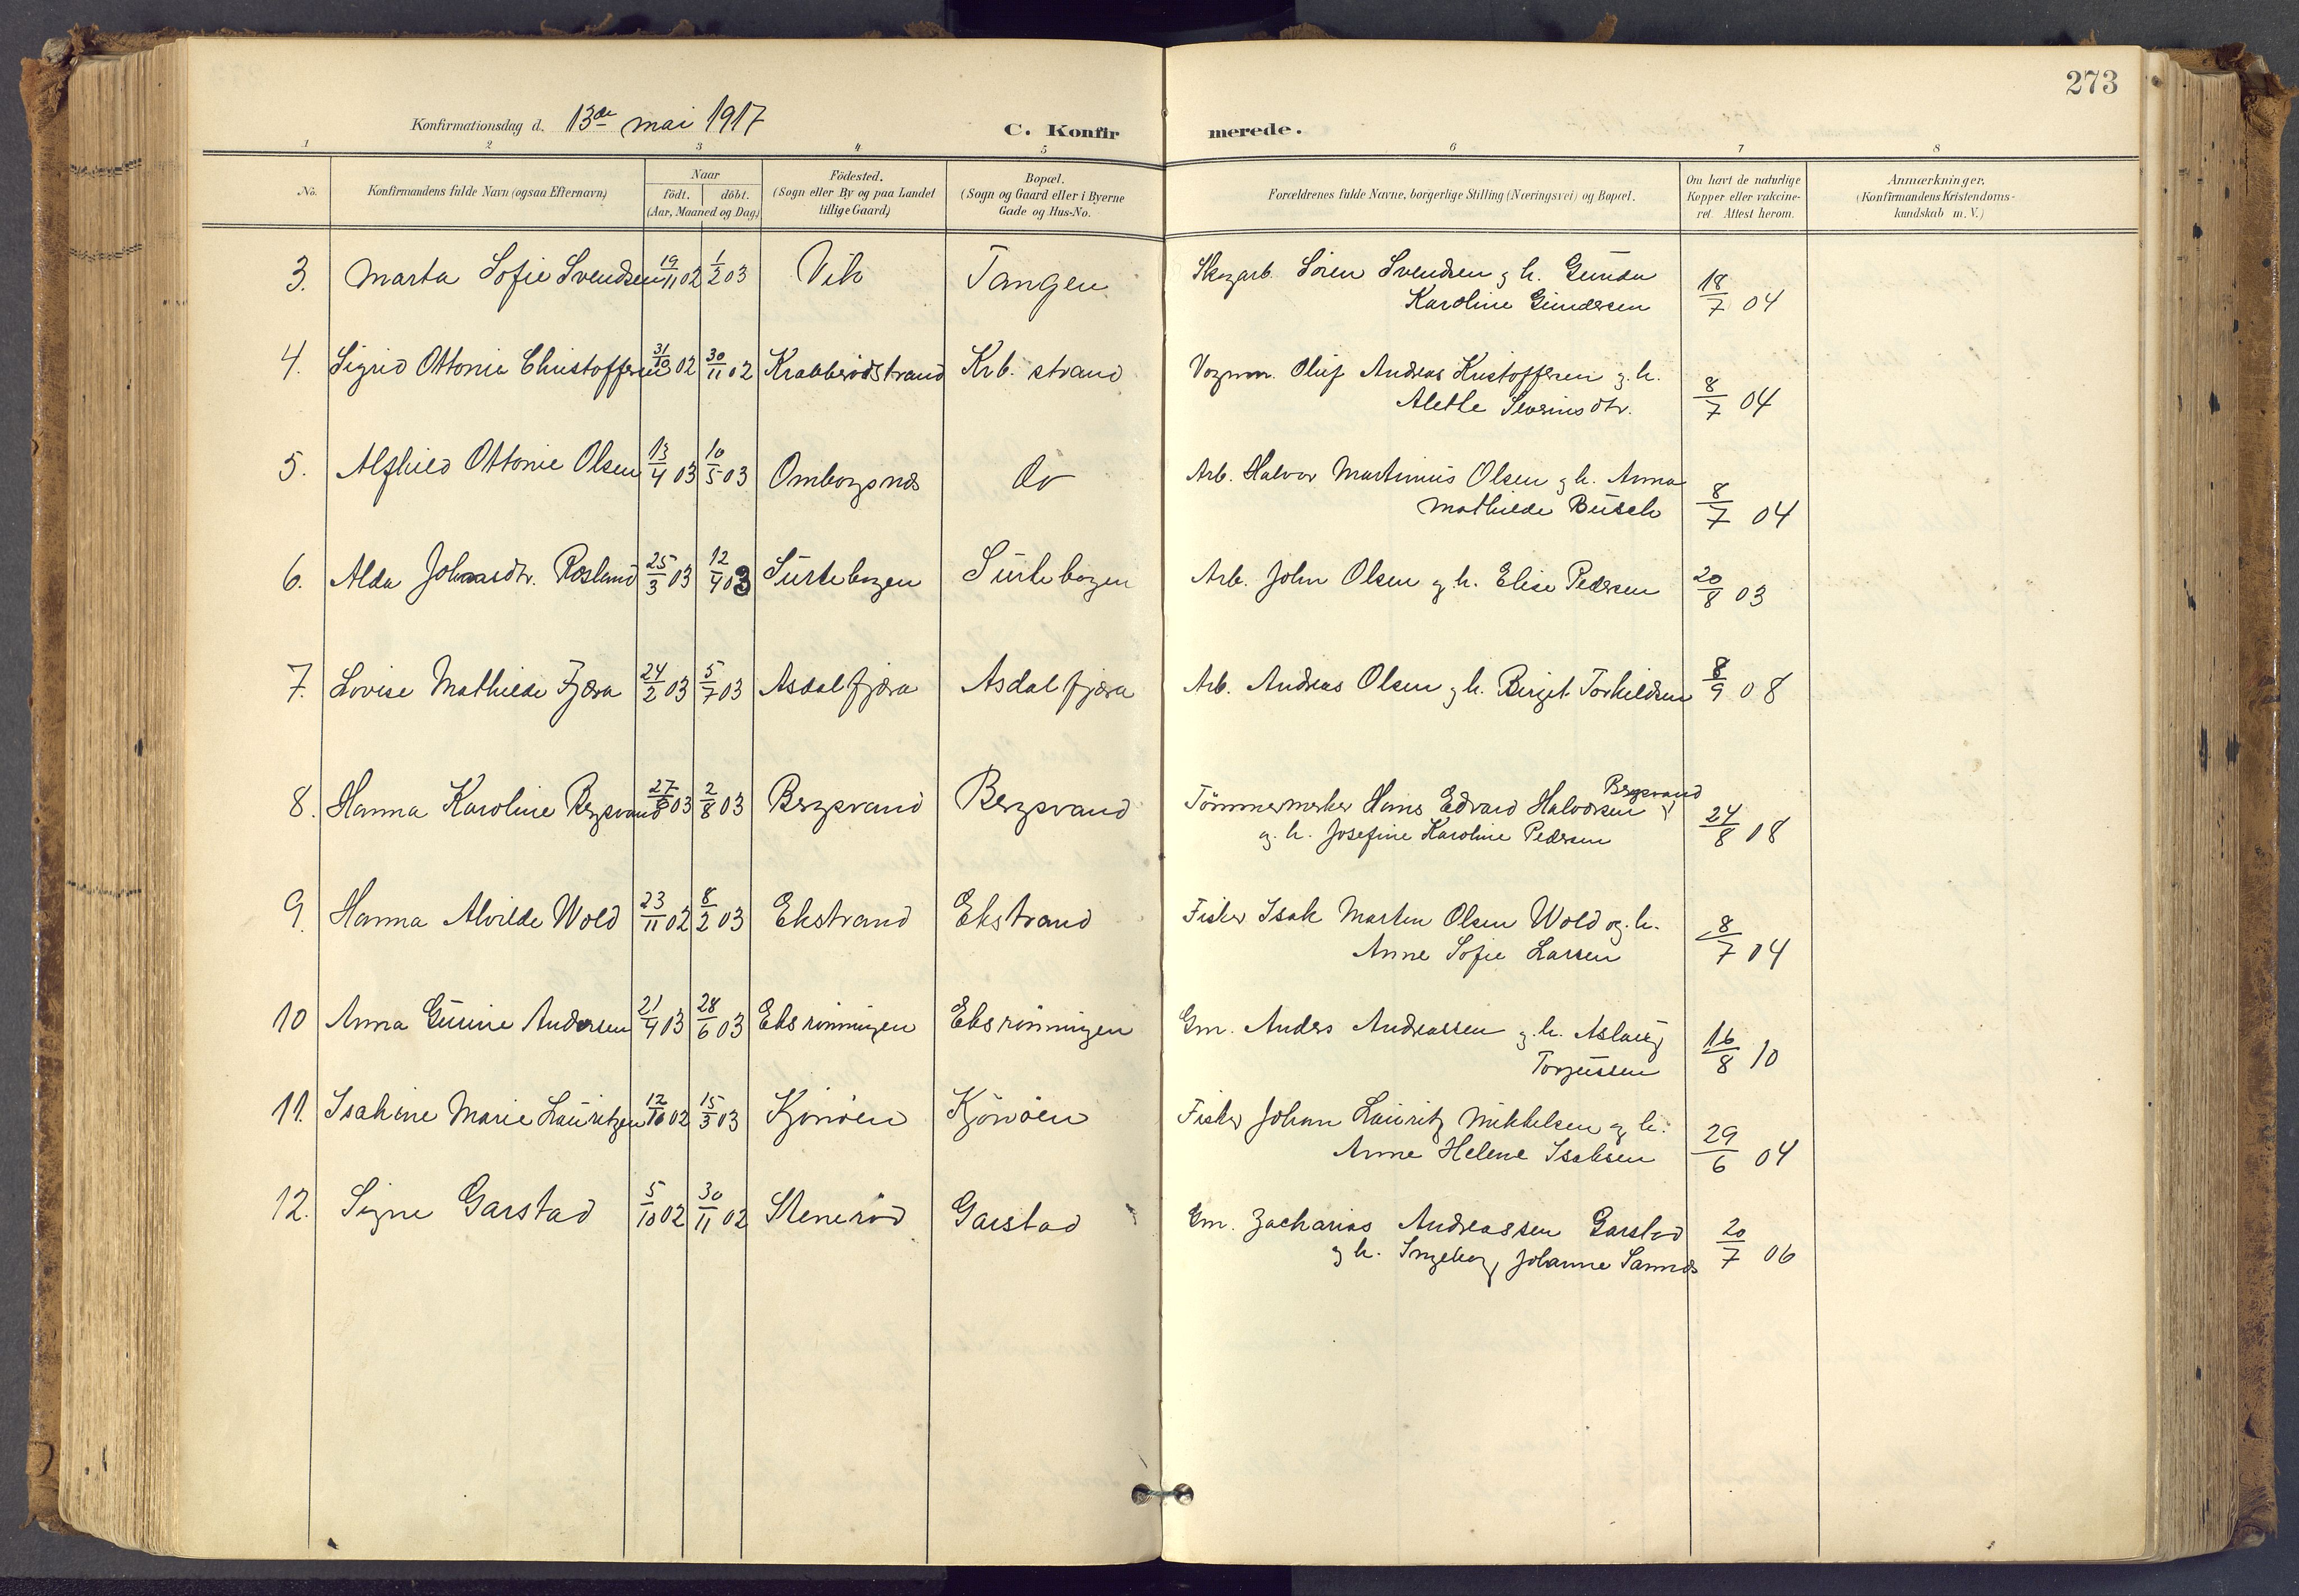 273
Konfirmationsdag d. 13de mai 1917
C. Konfir merede.
1 2 3 4 5 6 7 8
No.
Konfirmandens fulde Navn (ogsaa Efternavn)
Naar
født. døbt.
(Aar, Maaned og Dag)
Födested.
(Sogn eller By og paa Landet
tillige Gaard)
Bopæl.
(Sogn og Gaard eller i Byerne
Gade og Hus-No.
Forældrenes fulde Navne, borgerlige Stilling (Næringsvei) og Bopæl.
Om havt de naturlige
Kopper eller vakcine-
ret Attest herom.
Anmærkninger.
(Konfirmandens Kristendoms-
kundskab m. V.)
3. Marta Sofie Svendsen 19/11 02 1/2 03 Vik Tangen Skogarb. Sören Svendsen g. h. Gunda
Karoline Gundersen 18/7 04
4. Sigrid Ottonie Christoffersen 31/10 02 30/11 02 Krabberödstrand Krb. strand Vognm. Oluf Andreas Kristoffersen g. h.
Alethe Severinsdtr. 8/7 04
5. Alfhild Ottonie Olsen 13/4 03 10/5 03 Omborsnes do Arb. Halvor Martinius Olsen g. h. Anna
Mathilde Busch 8/7 04
6. Alda Johnsdtr. Rosland 25/3 03 12/4 03 Surtebogen Surtebogen Arb. John Olsen g. h. Elise Pedersen 20/8 03
7. Lovise Mathilde Fjæra 24/2 03 5/7 03 Asdalfjæra Asdalfjæra Arb. Andreas Olsen g. h. Birget Torkildsen 8/9 08
8. Hanna Karoline Bergsvand 03 2/8 03 Bergsvand Bergsvand Tömmermerker Hans Edvard Halvorsen Bergsvand
og. h. Josefine Karoline Pedersen 24/8 08
9. Hanna Alvilde Wold 23/11 02 8/2 03 Ekstrand Ekstrand Fisker Isak Marten Olsen Wold og. h.
Anne Sofie Larsen 8/7 04
10 Anna Gurine Andersen 21/4 03 28/6 03 Eksrönningen Eksrönningen Gm. Anders Andreassen g. h. Aslaug
Torjussen 16/8 10
11. Isakine Marie Lauritzen 12/10 02 15/3 03 Kjönöen Kjönöen Fisker Johan Lauritz Mikkelsen og h.
Anne Helene Isaksen 29/6 04
12. Signe Garstad 5/10 02 30/11 02 Steneröd Garstad Gm. Zacharias Andreassen Garstad
g h. Ingeborg Johanne Sannes 20/7 06